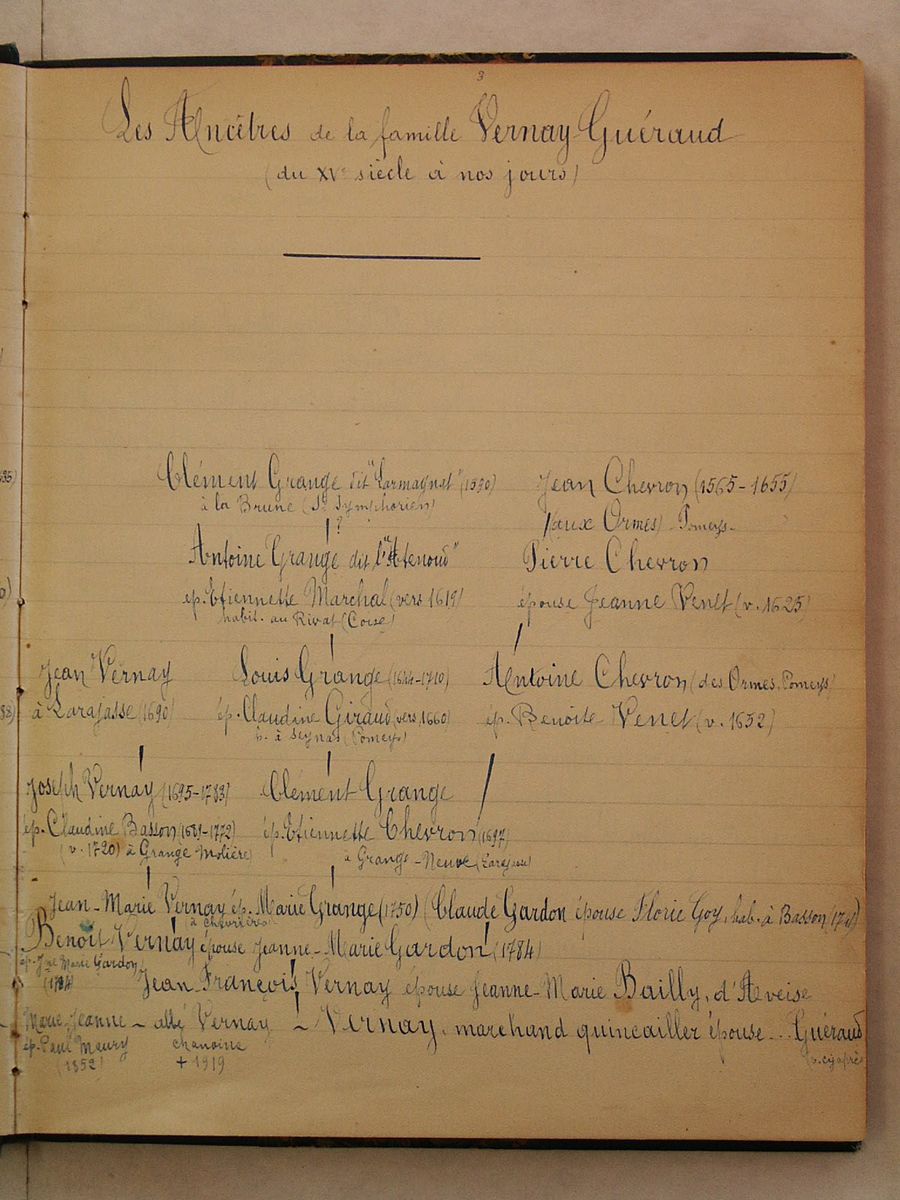 3
Les Ancêtres de la famille Vernay-Guéraud
(du XVe siècle à nos jours)
Clément Grange dit "Larmagnat" (1590) Jean Chevron (1565-1655)
à la Brune (St Symphorien) (aux Ormes) Pomeys-
?
Antoine Grange dit l'"Atenoud" Pierre Chevron
ép. Etiennette Marchal (vers 1619) épouse Jeanne Venet (v. 1625)
habit. au Rivat (Coise)
Jean Vernay Louis Grange (1624-1710) Antoine Chevron (des Ormes. Pomeys)
à Larajasse (1690) ép. Claudine Giraud (vers 1660) ép. Benoite Venet (v. 1652)
h. à Seynas (Pomeys)
Joseph Vernay (1695-1783) Clément Grange
ép. Claudine Basson (1689-1772) ép. Etiennette Chevron (1697)
(v. 1720) à Grange Molière) à Grange-Neuve (Larajasse)
Jean-Marie Vernay ép. Marie Grange (1750) (Claude Gardon épouse Florie Goy, hab. à Basson
à Chevrières
Benoit Vernay épouse Jeanne-Marie Gardon (1784)
ép. Jne Marie Gardon
(1784) Jean François Vernay épouse Jeanne-Marie Bailly, d'Aveise
Marie Jeanne - abbé Vernay - Vernay, marchand quincailler épouse... Guéraud
ép. Paul Maury chanoine (v. ci après)
(1852) + 1919